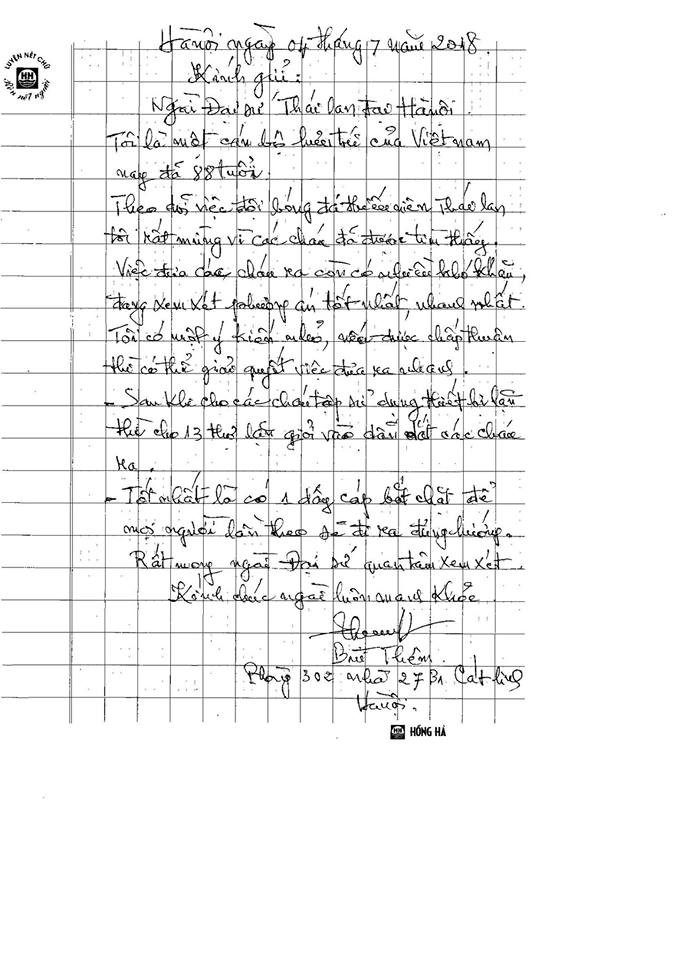 LUYỆN NÉT CHỮ
HH
Rèn nết người
Hà nội ngày 04 tháng 7 năm 2018.
Kính gửi:
Ngài Đại sứ Thái lan tại Hà nội.
Tôi là một cán bộ hưu trí của Việt nam
nay đã 88 tuổi.
Theo dõi việc đội bóng đá thiếu niên Thái lan
tôi rất mừng vì các cháu đã được tìm thấy.
Việc đưa các cháu ra còn có nhiều khó khăn,
đang xem xét phương án tốt nhất, nhanh nhất.
Tôi có một ý kiến nhỏ, nếu được chấp thuận
thì có thể giải quyết việc đưa ra nhanh.
- Sau khi cho các cháu tập sử dụng thiết bị lặn
thì cho 13 thợ lặn giỏi vào dẫn dắt các cháu
ra.
- Tốt nhất là có 1 dây cáp bắt chặt để
mọi người lần theo sẽ đi ra đúng hướng.
Rất mong ngài Đại sứ quan tâm xem xét.
Kính chúc ngài luôn mạnh khỏe
Thêm.
Phòng 302 nhà 27 Cát linh
Hà nội.
HH HỒNG HÀ